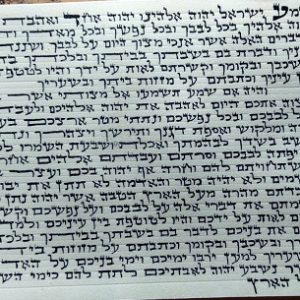 ישראל יהוה אלהינו יהוה אחד ואהבת
אלהיך בכל לבבך ובכל נפשך ובכל מאדך
הדברים האלה אשר אנכי מצוך היום על לבבך ושננתם
ודברת בם בשבתך בביתך ובלכתך
ובשכבך ובקומך וקשרתם לאות על ידך והיו לטטפת
עיניך וכתבתם על מזזות ביתך ובשעריך
והיה אם שמע תשמעו אל מצותי אשר
אתכם היום לאהבה את יהוה אלהיכם
לבבכם ובכל נפשכם ונתתי מטר ארצכם
ומלקוש ואספת דגנך ותירשך ויצהרך
בשדך לבהמתך ואכלת ושבעת השמרו
יפתה לבבכם וסרתם ועבדתם אלהים אחרים
להם וחרה אף יהוה בכם ועצר
ולא יהיה מטר והאדמה לא תתן את
מהרה מעל הארץ הטבה אשר יהוה
את דברי אלה על לבבכם ועל נפשכם
לאות על ידכם והיו לטוטפת בין עיניכם
את בניכם לדבר בם בשבתך בביתך
ובשכבך ובקומך וכתבתם על מזוזות
למען ירבו ימיכם וימי בניכם על
נשבע יהוה לאבתיכם לתת להם כימי
הארץ